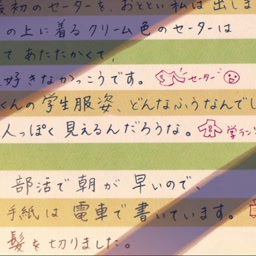 初のセーターを、おととい私は出しま
の上に着るクリーム色のセーターは
て あたたかくて、
好きなかっこうです。 セーター
くんの学生服姿、どんなふうなんでし
人っぽく見えるんだろうな。 学ラン
部活で朝が早いので、
手紙は電車で書いています。
髪を切りました。